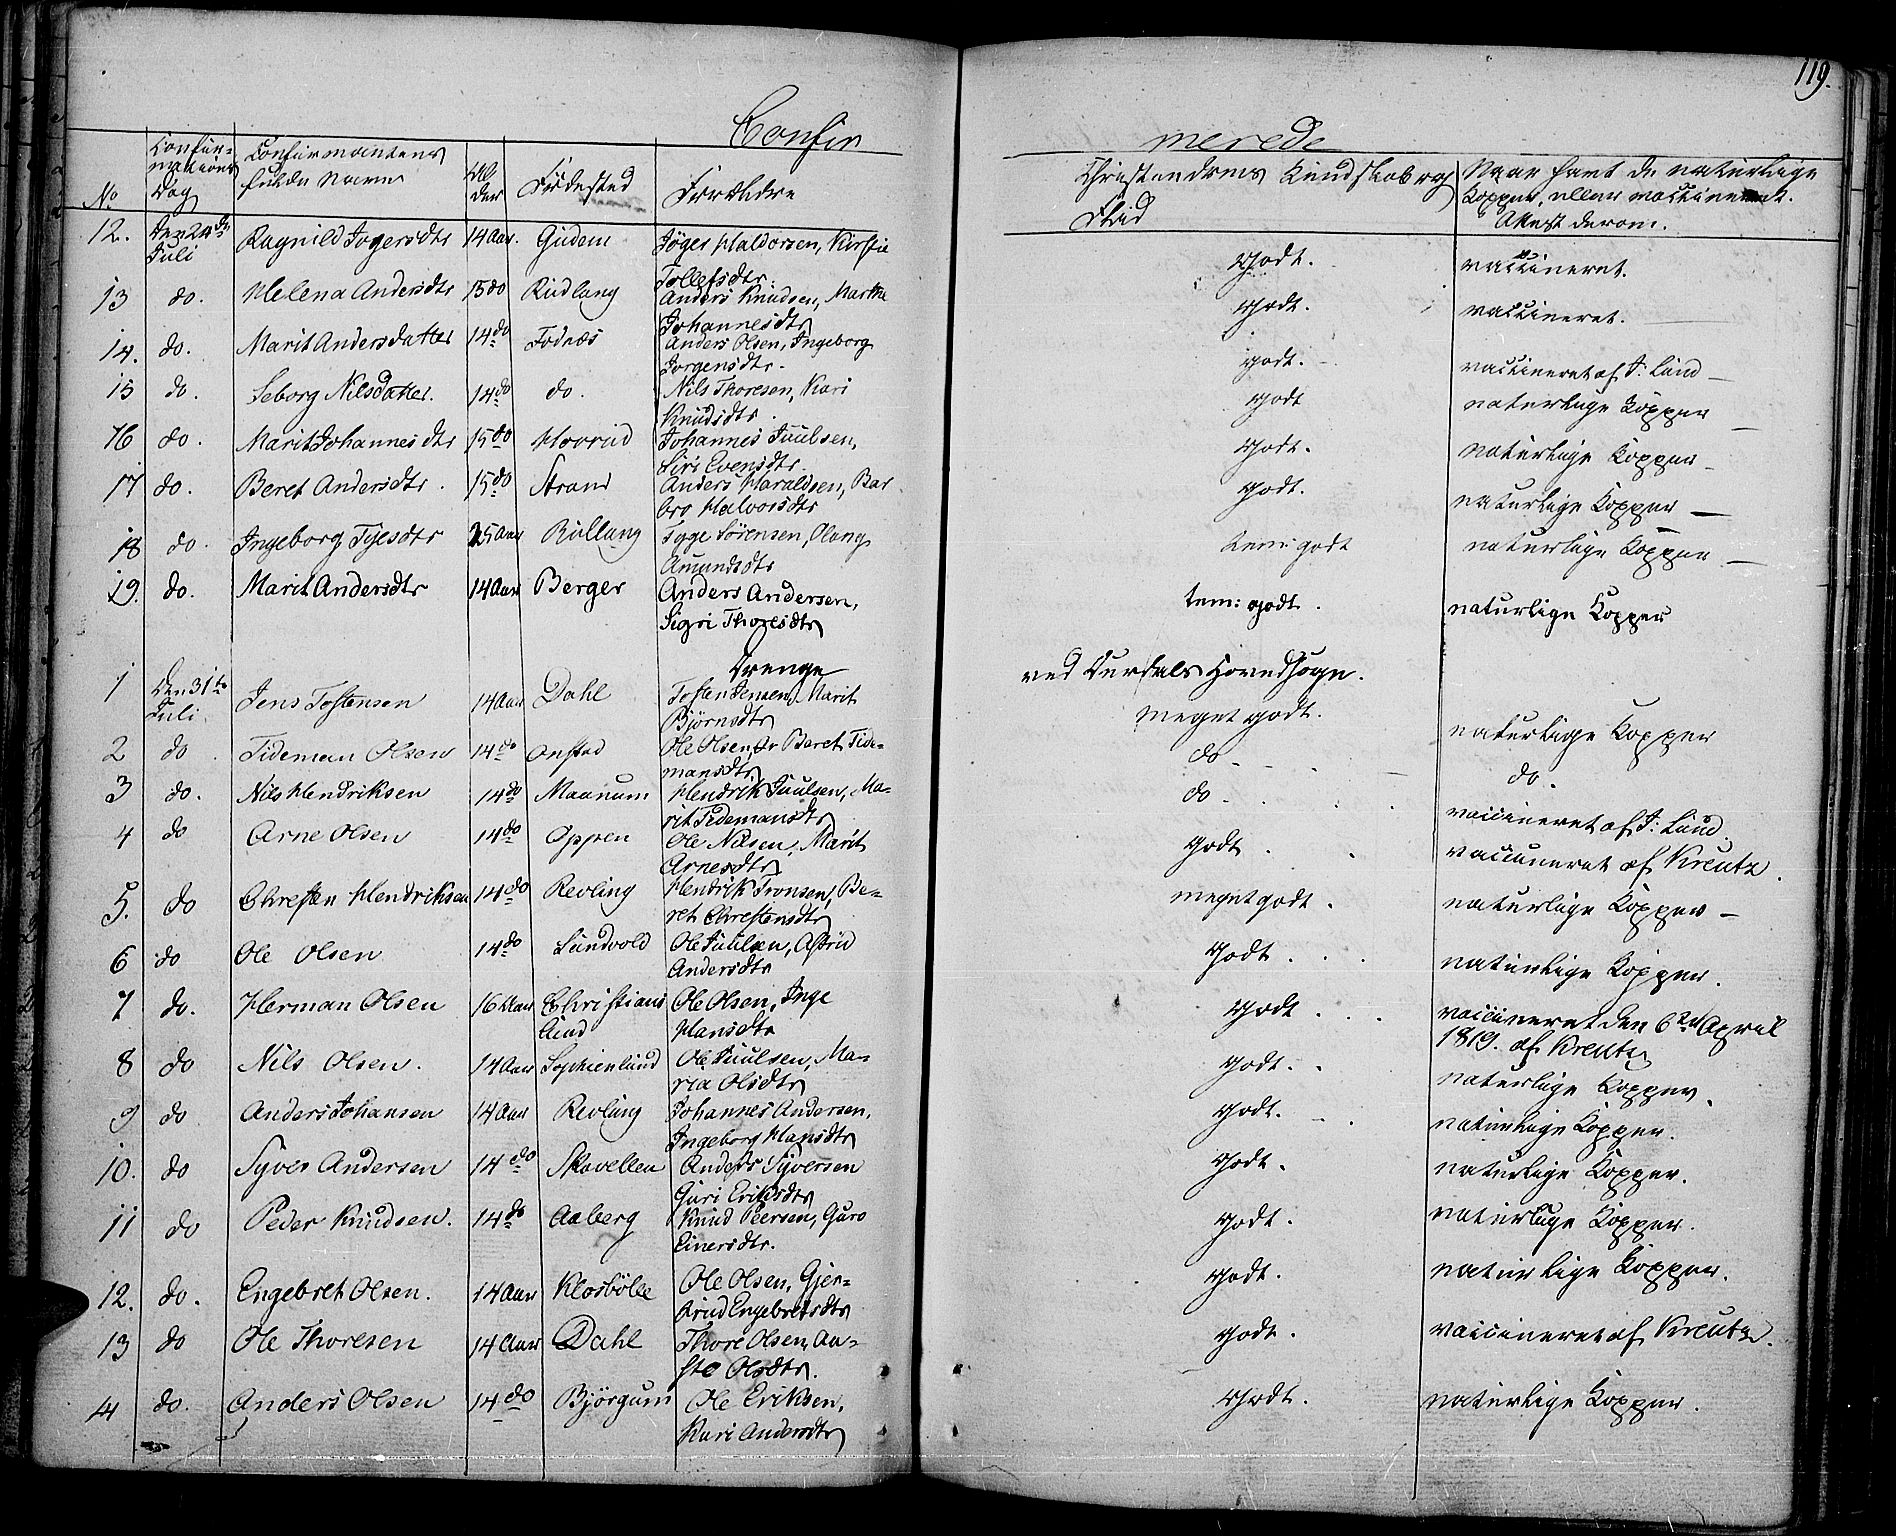 119.
Confir merede
No
Confir-
mations
Dag
Confirmantens
fulde Navn
Al
der
Födested
Forældre
Christendoms Kundskab og
Flid
Naar havt de naturlige
Kopper, eller vaccineret.
Attest derom.
12. Den 24de Juli Ragnild Jogersdtr 14 Aar. Gudem Jöger Haldorsen, Kirstie Tollefsdtr. Godt. vaccineret.
13 do. Helena Andersdtr 15 do Rudlang Anders Knudsen, Marthe Johannesdtr Godt. vaccineret.
14. do. Marit Andersdatter 14 do Fodnæs Anders Olsen, Ingeborg Jorgensdtr. godt. vaccineret af J: Lund
15 do. Seborg Nilsdatter. 14 do do. Nils Thoresen, Kari Knudsdtr. Godt naturlige Kopper
16 do. Marit Johannesdtr 15 do Hovrud Johannes Juulsen, Siri Evensdtr. Godt. naturlige Kopper
17 do. Beret Andersdtr. 15 do Strand Anders Haraldsen, Bar bro Halvorsdtr Godt. naturlige Kopper
18 do. Ingeborg Tygesdtr 15 Aar Rullang Tyge Sörensen, Olang Amundsdtr tem: godt naturlige Kopper
19. do. Marit Andersdtr 14 Aar Berger Anders Andersen, Sigri Thoresdtr tem: godt. naturlige Kopper
Drenge ved Aurdals Hovedsogn.
1 Den 31te Juli. Jens Tostensen 14 Aar Dahl Tosten Jensen, Marit Björnsdtr meget godt. naturlige Kopper
2 do. Tideman Olsen 14 do Onstad Ole Olsen, Beret Tide- mansdtr do do.
3 do. Nils Hendriksen 14 do Maanum Hendrik Juulsen, Ma- rit Tidemansdtr do. vaccineret af J: Lund.
4 do Arne Olsen 14 do Oppen Ole Nilsen, Marit Arnesdtr Godt. vaccineret af Kreutz.
5. do Chresten Hendriksen 14 do Revling Hendrik Tronsen, Be- ret Chrestensdtr meget godt. naturlige Kopper
6 do Ole Olsen 14 do Lundvold Ole Juulsen, Astrid Andersdtr Godt. naturlige Kopper.
7 do. Herman Olsen 16 Aar Christians lund Ole Olsen, Inge Hansdtr Godt. vaccineret den 6te April 1819. af Kreutz
8 do Nils Olsen. 14 Aar Sophienlund Ole Juulsen, Ma- ria Olsdtr Godt. naturlige Kopper.
9 do Anders Johansen 14 Aar Revling Johannes Andersen, Ingeborg Hansdtr Godt. naturlige Kopper.
10. do Syver Andersen 14 do Skavellen Anders Syversen Guri Eriksdtr Godt. naturlige Kopper.
11 do Peder Knudsen. 14 do Aaberg Knud Peersen, Guro Einersdtr. Godt. naturlige Kopper.
12. do. Engebret Olsen. 14 Aar Klosbölle Ole Olsen, Gjer- trud Engebretsdtr Godt. naturlige Kopper.
13 do Ole Thoresen 14 Aar Dahl Thore Olsen, An- ste Olsdtr. Godt. vaccineret af Kreutz.
14 do. Anders Olsen 14 do Björgum Ole Eriksen, Kari Andersdtr Godt. naturlige Kopper.